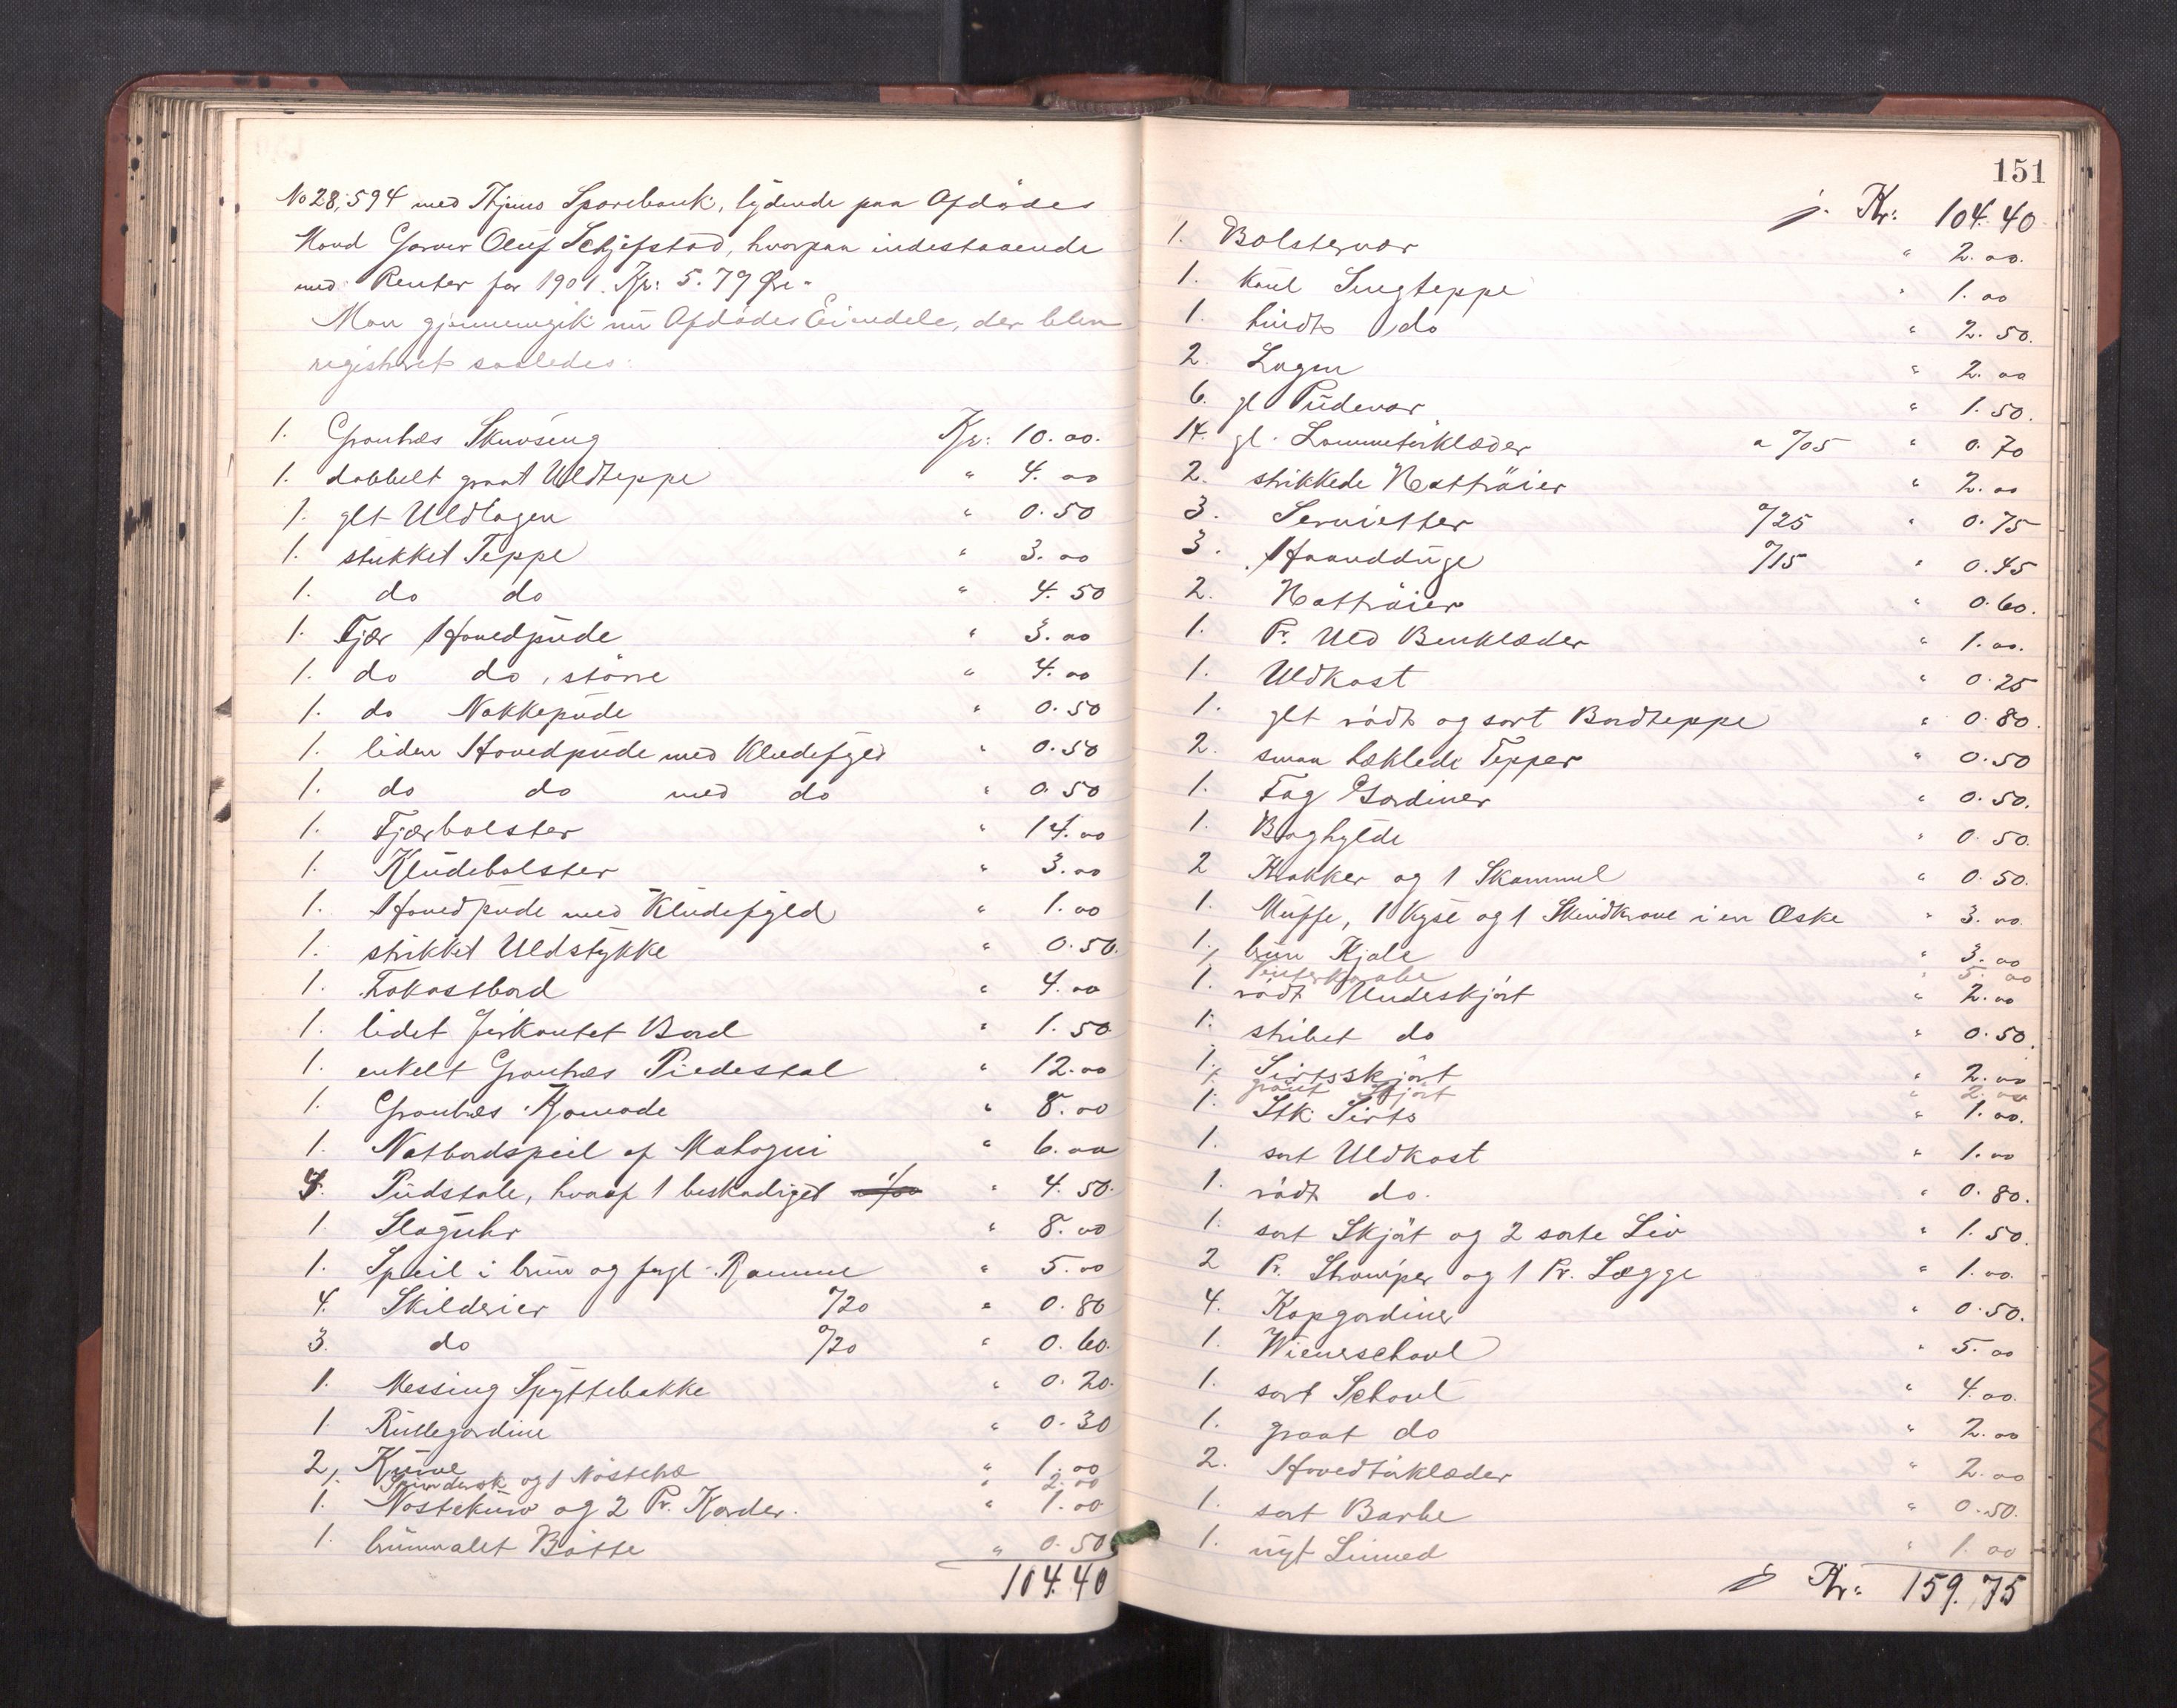 No 28,594 med Thjems Sparebank, lydende paa Afdødes
Mand Garver Oluf Schjefstad, hvorpaa indestaaende
med Renter for 1901 Kr: 5.79 Øre.
Man gjennemgik nu Afdødes Eiendele, der blev
registreret saaledes:
1. Grantræs Skuvseng Kr: 10.00.
1. dobbelt graat Uldteppe " 4.00
1. glt Uldlagen " 0.50
1. stukket Teppe " 3.00
1. do do " 4.50
1. Fjær Hovedpude " 3.00
1. do do, større " 4.00
1. do Nakkepude " 0.50
1. liden Hovedpude med Kludefyld " 0.50
1. do do med do " 0.50
1. Fjærbolster " 14.00
1. Kludebolster " 3.00
1. Hovedpude med Kludefyld " 1.00
1. strikket Uldstykke " 0.50.
1. Frokostbord " 4.00
1. lidet firkantet Bord " 1.50
1. enkelt Grantræs Piedestal " 12.00
1. Grantræs Komode " 8.00
1. Natbordspeil af Mahogni " 6.00
4. Pindstole, hvoraf 1 beskadiget " 4.50.
1. Slaguhr " 8.00
1. Speil i brun og forgl. Ramme " 5.00
4. Skilderier a/20 " 0.80
3. do a/20 " 0.60.
1. Messing Spyttebakke " 0.20.
1. Rullegardine " 0.30
2. Kurve " 1.00
1. Spinderok og 1 Nøstetræ " 2.00
1. Nøstekurv og 2 Pr. Karder. " 1.00
1. brunmalet Bøtte " 0.50
104.40
151
j. Kr: 104.40
1. Bolstervar " 2.00.
1. Sengteppe " 1.00
1. hvidt do " 2.50.
2. Lagen " 2.00
6. gl Pudevar " 1.50.
14. gl. Lommetørklæder a a/05 " 0.70
2. strikkede Nattrøier " 2.00
3. Servietter a/25 " 0.75
3. Haandduge a/15 " 0.45
2. Nattrøier " 0.60.
1. Pr. Uld Benklæder " 1.00.
1. Uldkast " 0.25
1. glt rødt og sort Bordteppe " 0.80.
2. smaa hæklede Tepper " 0.50
1. Fag Gardiner " 0.50.
1. Boghylde " 0.50.
2 Krakker og 1 Skammel " 0.50.
1. Muffe, 1 Kyse og 1 Skindkrave i en Æske " 3.00.
1. brun Kjole " 3.00
1. Vinterkaabe " 5.00
1. rødt Underskjørt " 2.00
1. stribet do " 0.50.
1. Sirtsskjørt " 2.00
1. graat Skjørt " 2.00
1. Stk. Sirts " 1.00.
1. sort Uldkast " 1.00
1. rødt do. " 0.80.
1. sort Skjøt og 2 sorte Liv " 1.50.
2 Pr. Strømper og 1 Pr. Lægge " 1.00.
4. Kapgardiner " 0.50.
1. Wienerschavl " 5.00
1. sort Schavl " 4.00.
1. graat do " 2.00
2. Hovedtørklæder " 2.00
1. sort Barbe " 0.50.
1. nyt Linned " 1.00
j Kr: 159.75